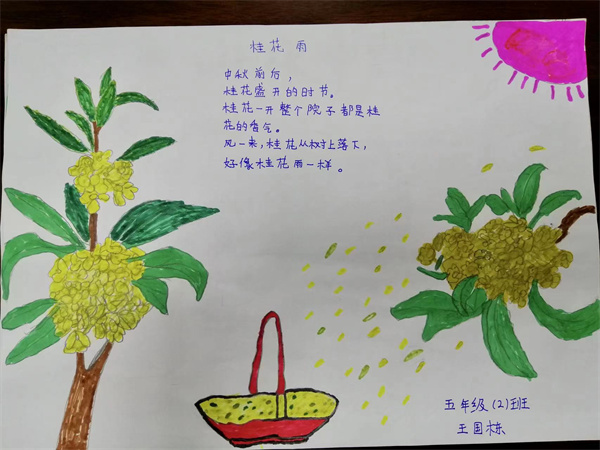 桂花雨
中秋前后，
桂花盛开的时节。
桂花一开整个院子都是桂
花的香气。
风一来，桂花从树上落下，
好像桂花雨一样。
五年级（2）班
王国栋